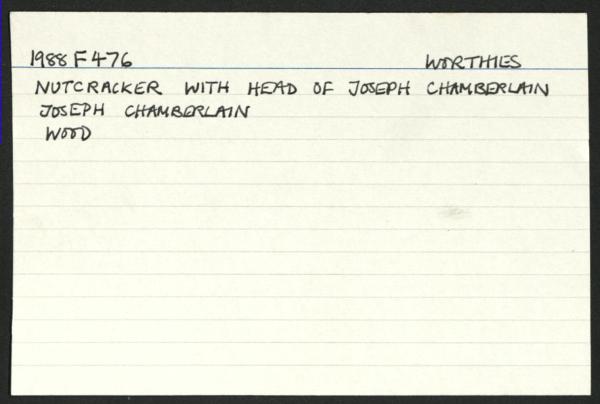 1988 F 476 WORTHIES
NUTCRACKER WITH HEAD OF JOSEPH CHAMBERLAIN
JOSEPH CHAMBERLAIN
WOOD